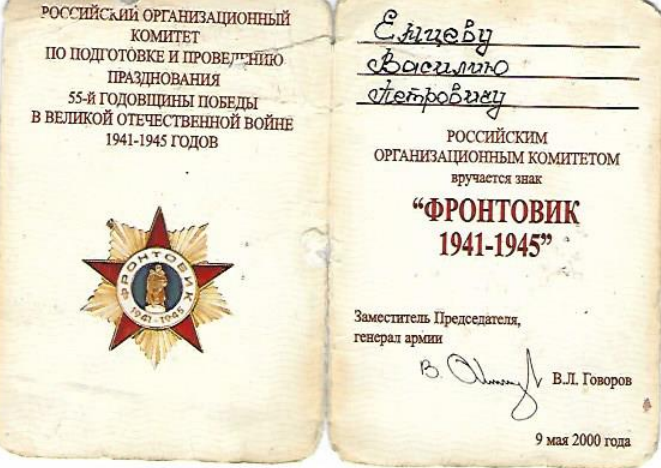 РОССИЙСКИЙ ОРГАНИЗАЦИОННЫЙ
КОМИТЕТ
ПО ПОДГОТОВКЕ И ПРОВЕДЕНИЮ
ПРАЗДНОВАНИЯ
55-й ГОДОВЩИНЫ ПОБЕДЫ
В ВЕЛИКОЙ ОТЕЧЕСТВЕННОЙ ВОЙНЕ
1941-1945 ГОДОВ
ФРОНТОВИК
1941-1945
Емцеву
Василию
Петровичу
РОССИЙСКИМ
ОРГАНИЗАЦИОННЫМ КОМИТЕТОМ
вручается знак
“ФРОНТОВИК
1941-1945”
Заместитель Председателя,
генерал армии
В.Л. Говоров
9 мая 2000 года